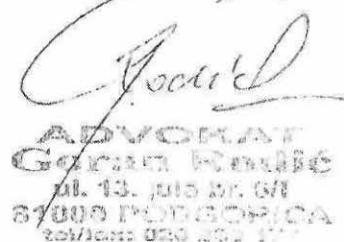 Rodić
ADVOKAT
Goran Rodić
ul. 13. jula br. 6/I
81000 PODGORICA
tel/fax: 020